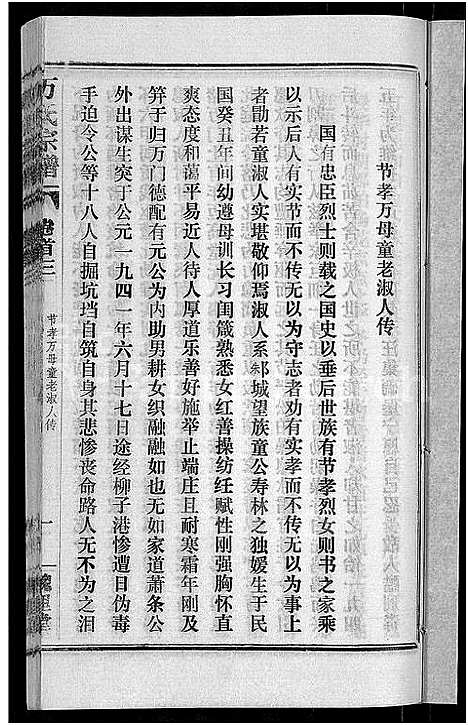 节孝万母童老淑人传
国有忠臣烈士则载之国史以垂后世族有节孝烈女则书之家乘
以示后人有实节而不传无以为守志者劝有实孝而不传无以为事上
者勖若童淑人实堪敬仰焉淑人系邾城望族童公寿林之独嫒生于民
国癸丑年间幼遵母训长习闺箴熟悉女红善操纺纴赋性刚强胸怀直
爽态度和蔼平易近人待人厚道乐善好施举止端庄且耐寒霜年刚及
笄于归万门德配有元公为内助男耕女织融融如也无如家道萧条公
外出谋生突于公元一九四一年六月十七日途经柳子港惨遭日伪毒
手迫令公等十八人自掘坑垱自筑自身其悲惨丧命路人无不为之泪
万氏宗谱
卷首三
节孝万母童老淑人传
一
槐星堂